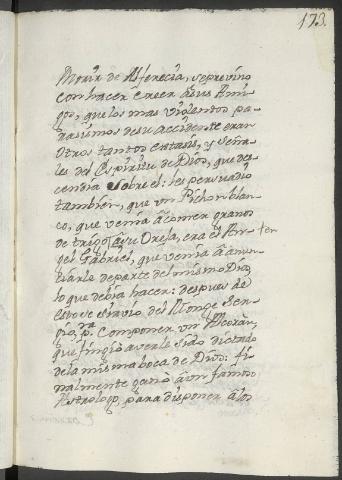 173.
Morir de Alferecia, se previno
con hacer Creer à sus Ami-
gos, que los mas violentos pa-
rasismos de su accidente eran
Otros tantos extasis, y Seña-
les del Espiritu de Dios, que des-
cendia Sobre el: les persuadió
tambien, que un Pichon blan-
co, que venia à comer granos
de trigo à su Oreja, era el An-
gel Gabriel, que venia à anun-
tiarle de parte del mismo Dios,
lo que debia hacer: despues de
esto se sirvio del Monge Ser-
gio, pa. Componer un Alcoran,
que fingió averle Sido dictado
de la misma boca de Dios: fi-
nalmente ganó à un famoso
Astrologo, para disponer à los